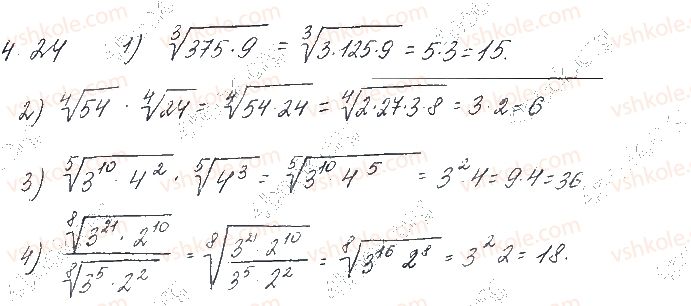 4.24 1) ∛(375·9) = ∛(3·125·9) = 5·3 = 15.
2) ⁴√54 · ⁴√24 = ⁴√(54·24) = ⁴√(2·27·3·8) = 3·2 = 6
3) ⁵√(3¹⁰·4²) · ⁵√(4³) = ⁵√(3¹⁰ 4⁵) = 3²4 = 9·4 = 36.
4) ⁸√(3²¹·2¹⁰) / ⁸√(3⁵·2²) = ⁸√((3²¹ 2¹⁰)/(3⁵·2²)) = ⁸√(3¹⁶ 2⁸) = 3²2 = 18.
vshkole.com